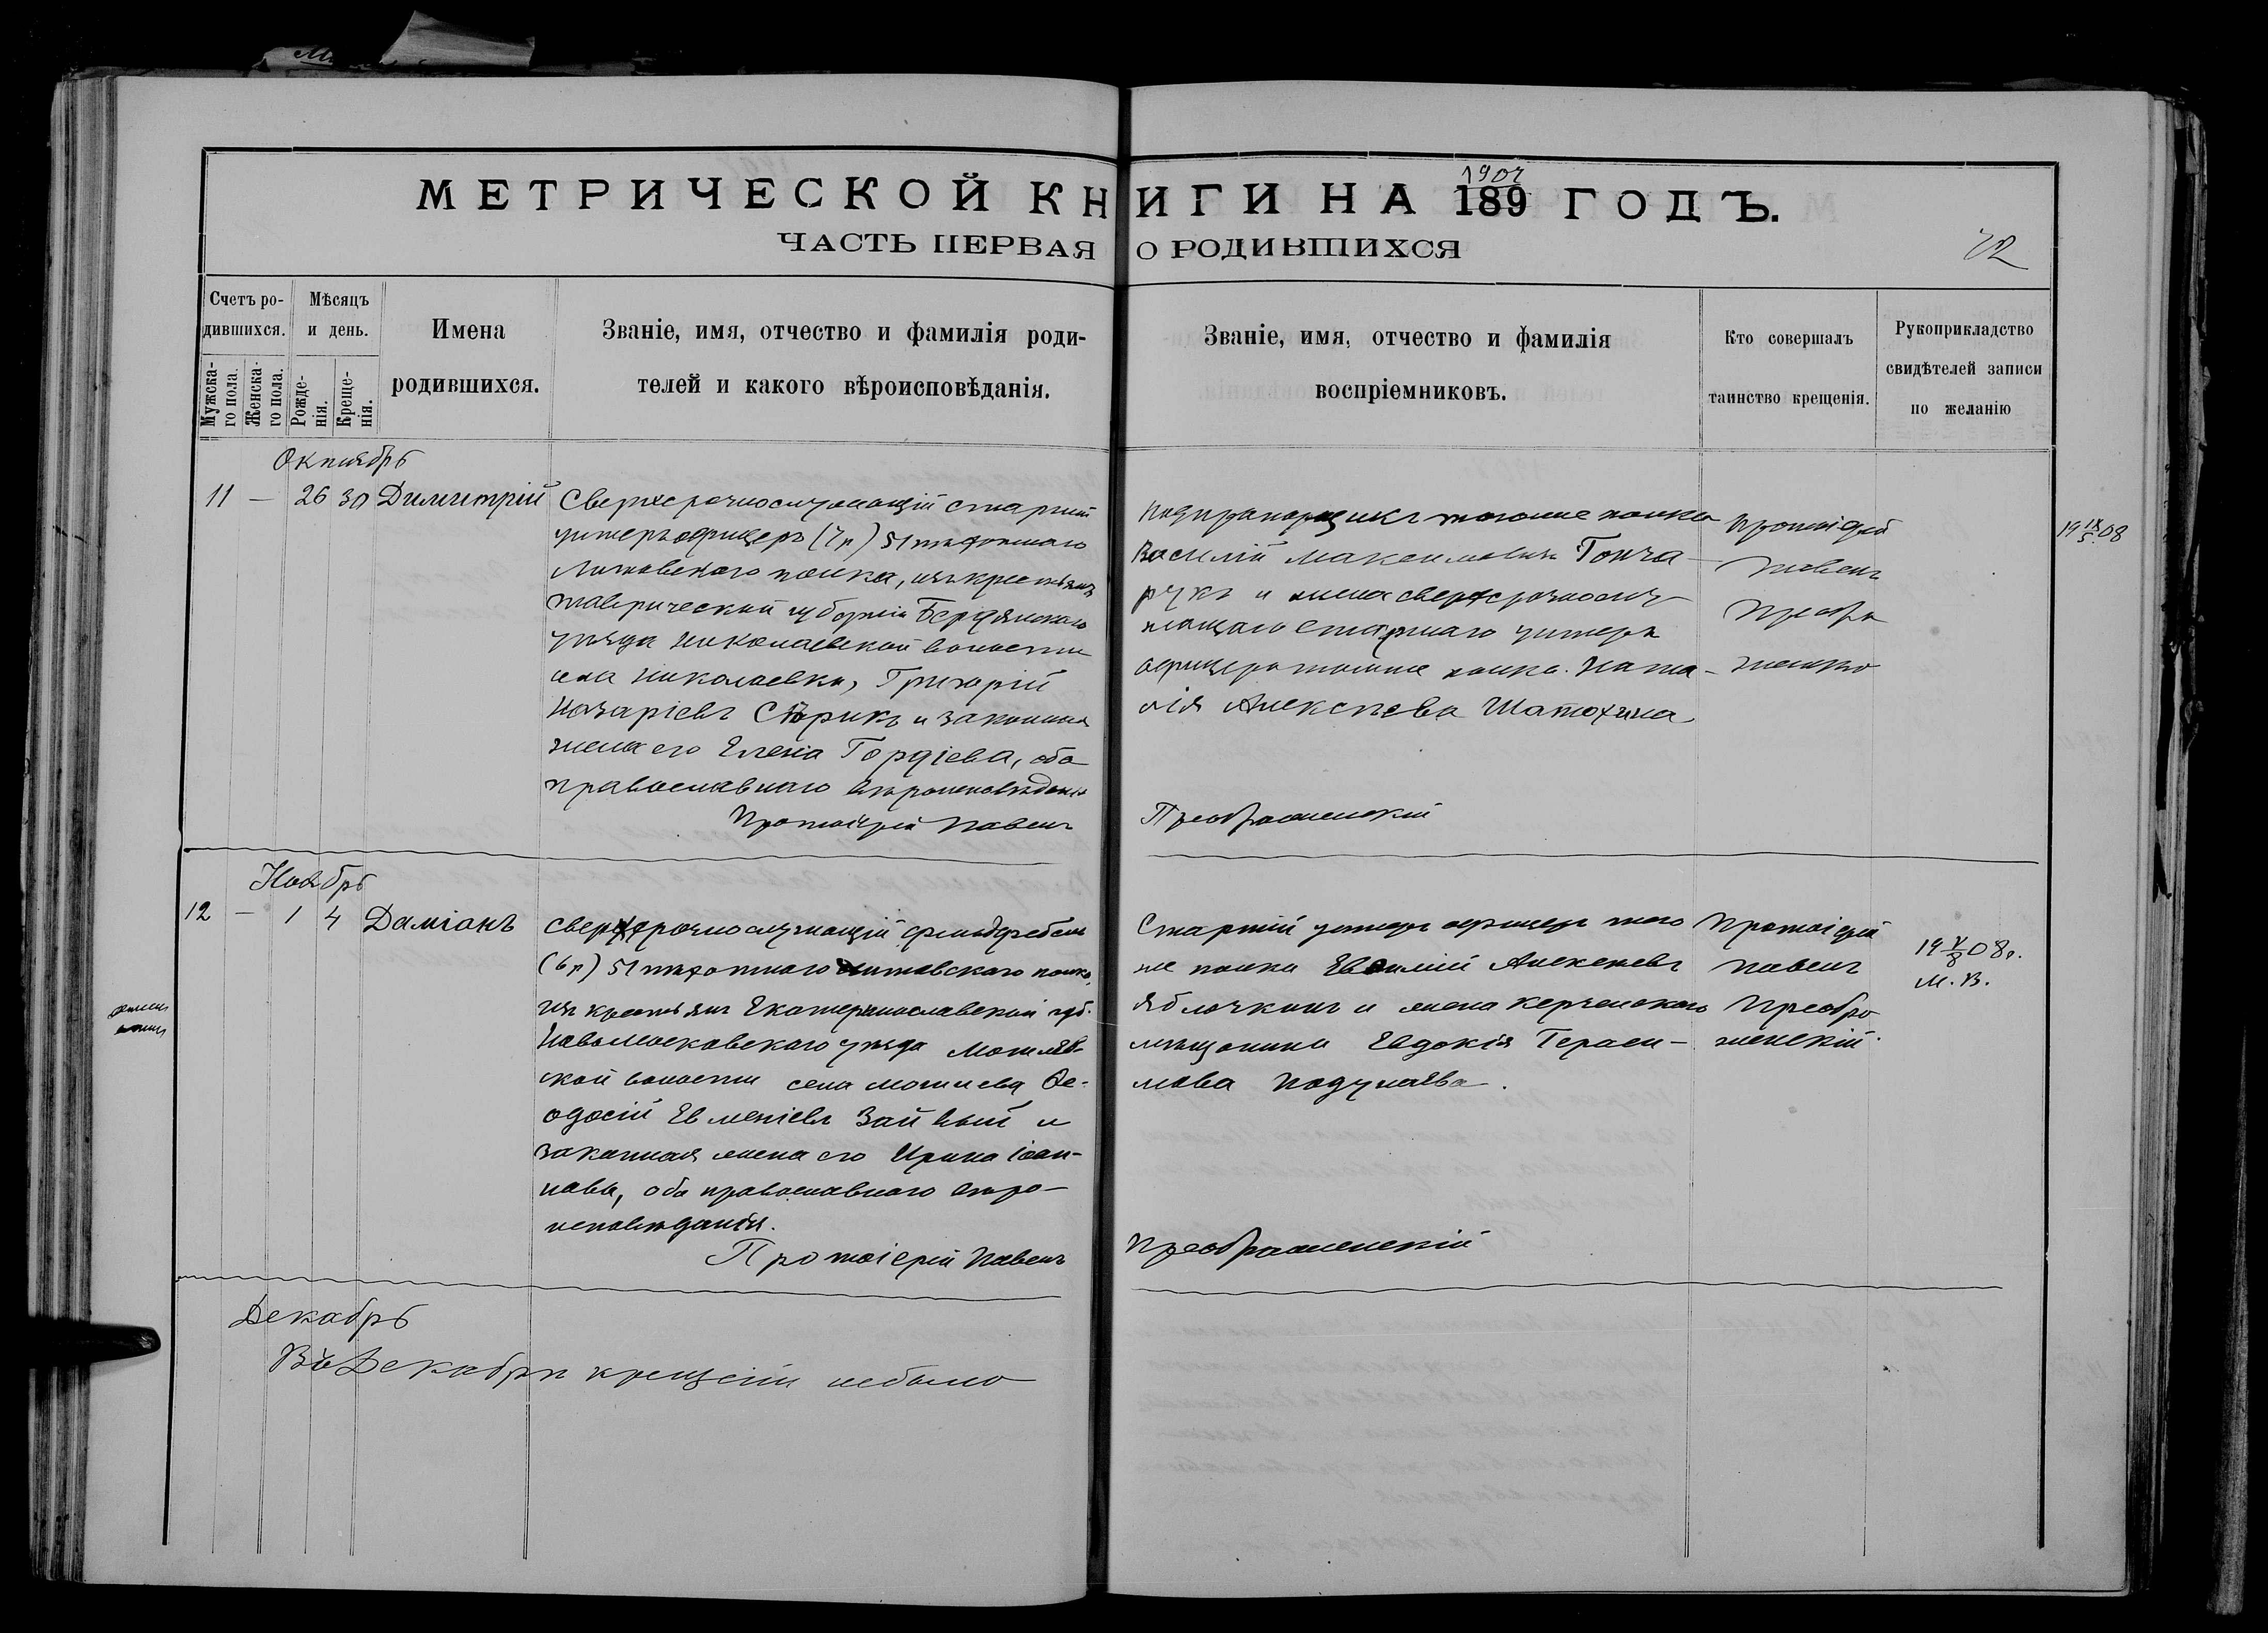 МЕТРИЧЕСКОЙ КНИГИ НА 189 ГОДЪ.
1907
ЧАСТЬ ПЕРВАЯ О РОДИВШИХСЯ
Счетъ ро-
дившихся.
Мужска-
го пола.
Женска-
го пола.
Мѣсяцъ
и день.
Рожде-
нія.
Креще-
нія.
Имена
родившихся.
Званіе, имя, отчество и фамилія роди-
телей и какого вѣроисповѣданія.
Званіе, имя, отчество и фамилія
воспріемниковъ.
Кто совершалъ
таинство крещенія.
Рукоприкладство
свидѣтелей записи
по желанію
Октябрь
11 — 26 30 Димитрій
Сверхсрочнослужащій старшій
унтеръ офицеръ (7 р) 51 пѣхотнаго
Литовскаго полка, изъ крестьянъ
Таврической губерніи Бердянскаго
уѣзда Николаевской волости
села Николаевки, Григорій
Назаріевъ Сѣрикъ и законная
жена его Елена Гордіева, оба
православнаго вѣроисповѣданія
Протоіерей Павелъ
Подпрапорщикъ того же полка
Василій Максимовичъ Гонча-
рукъ и жена сверхсрочнослу-
жащаго старшаго унтеръ
офицера того же полка Ната-
лія Алексѣева Шатохина.
Преображенскій
Протоіерей
Павелъ
Преобра
19 08
Ноябрь
12 — 1 4 Даміанъ
Сверхсрочнослужащій фельдфебель
(6 р) 51 пѣхотнаго Литовскаго полка,
изъ крестьянъ Екатеринославской губ.
Новомосковскаго уѣзда Могилев-
ской волости села Могилева Ѳе-
одосій Евменіевъ Зайвый и
законная жена его Ирина Іоан-
нова, оба православнаго вѣро-
исповѣданія.
Протоіерей Павелъ
Старшій унтеръ офицеръ того
же полка Евфимій Алексѣевъ
Яблочкинъ и жена керченскаго
мѣщанина Евдокія Гераси-
мова Подунаева.
Преображенскій
Протоіерей
Павелъ
Преобра
женскій.
19 V/8 08 г.
М. В.
Декабрь
Въ Декабрѣ крещеній не было